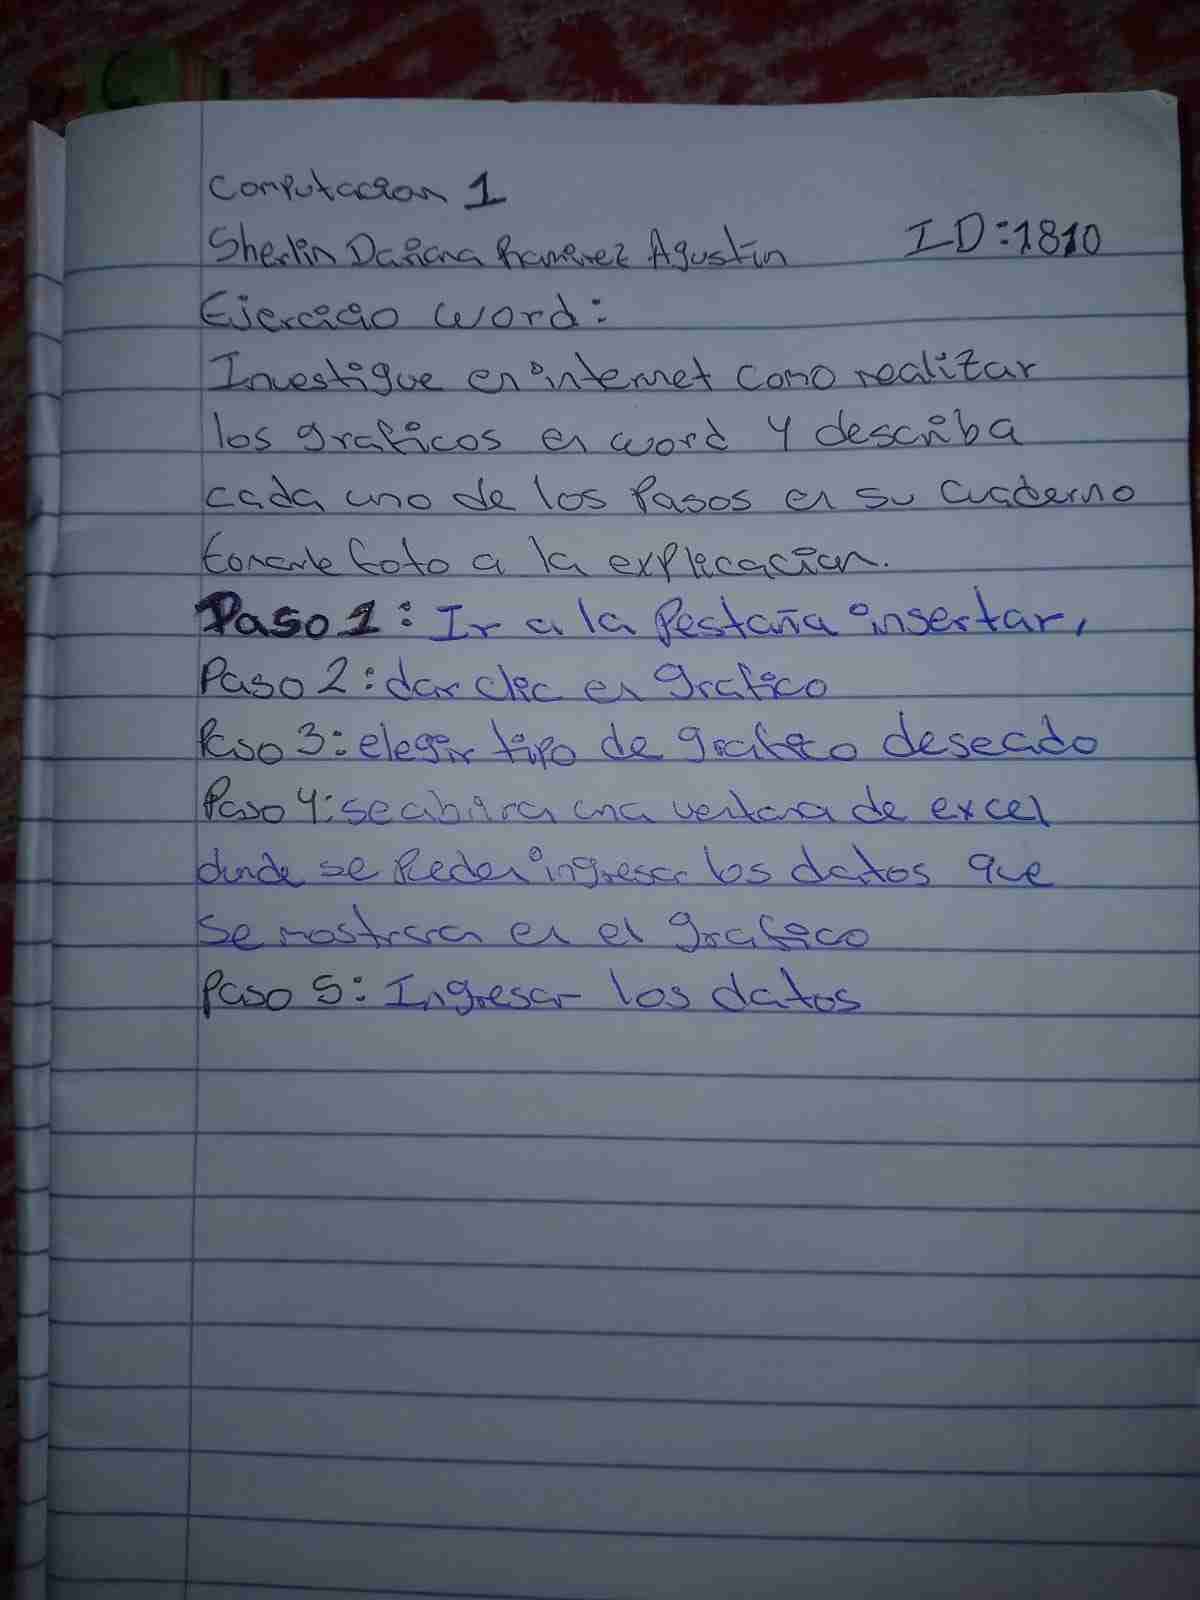 Computacion 1
Sherlin Dariana Ramirez Agustin ID:1810
Ejercicio word:
Investigue en internet como realizar
los graficos en word y describa
cada uno de los Pasos en su cuaderno
tomarle foto a la explicacion.
Paso 1: Ir a la Pestaña insertar,
Paso 2: dar clic en grafico
Paso 3: elegir tipo de grafico deseado
Paso 4: se abrira una ventana de excel
donde se Peden ingresar los datos que
se mostrara en el grafico
Paso 5: Ingresar los datos